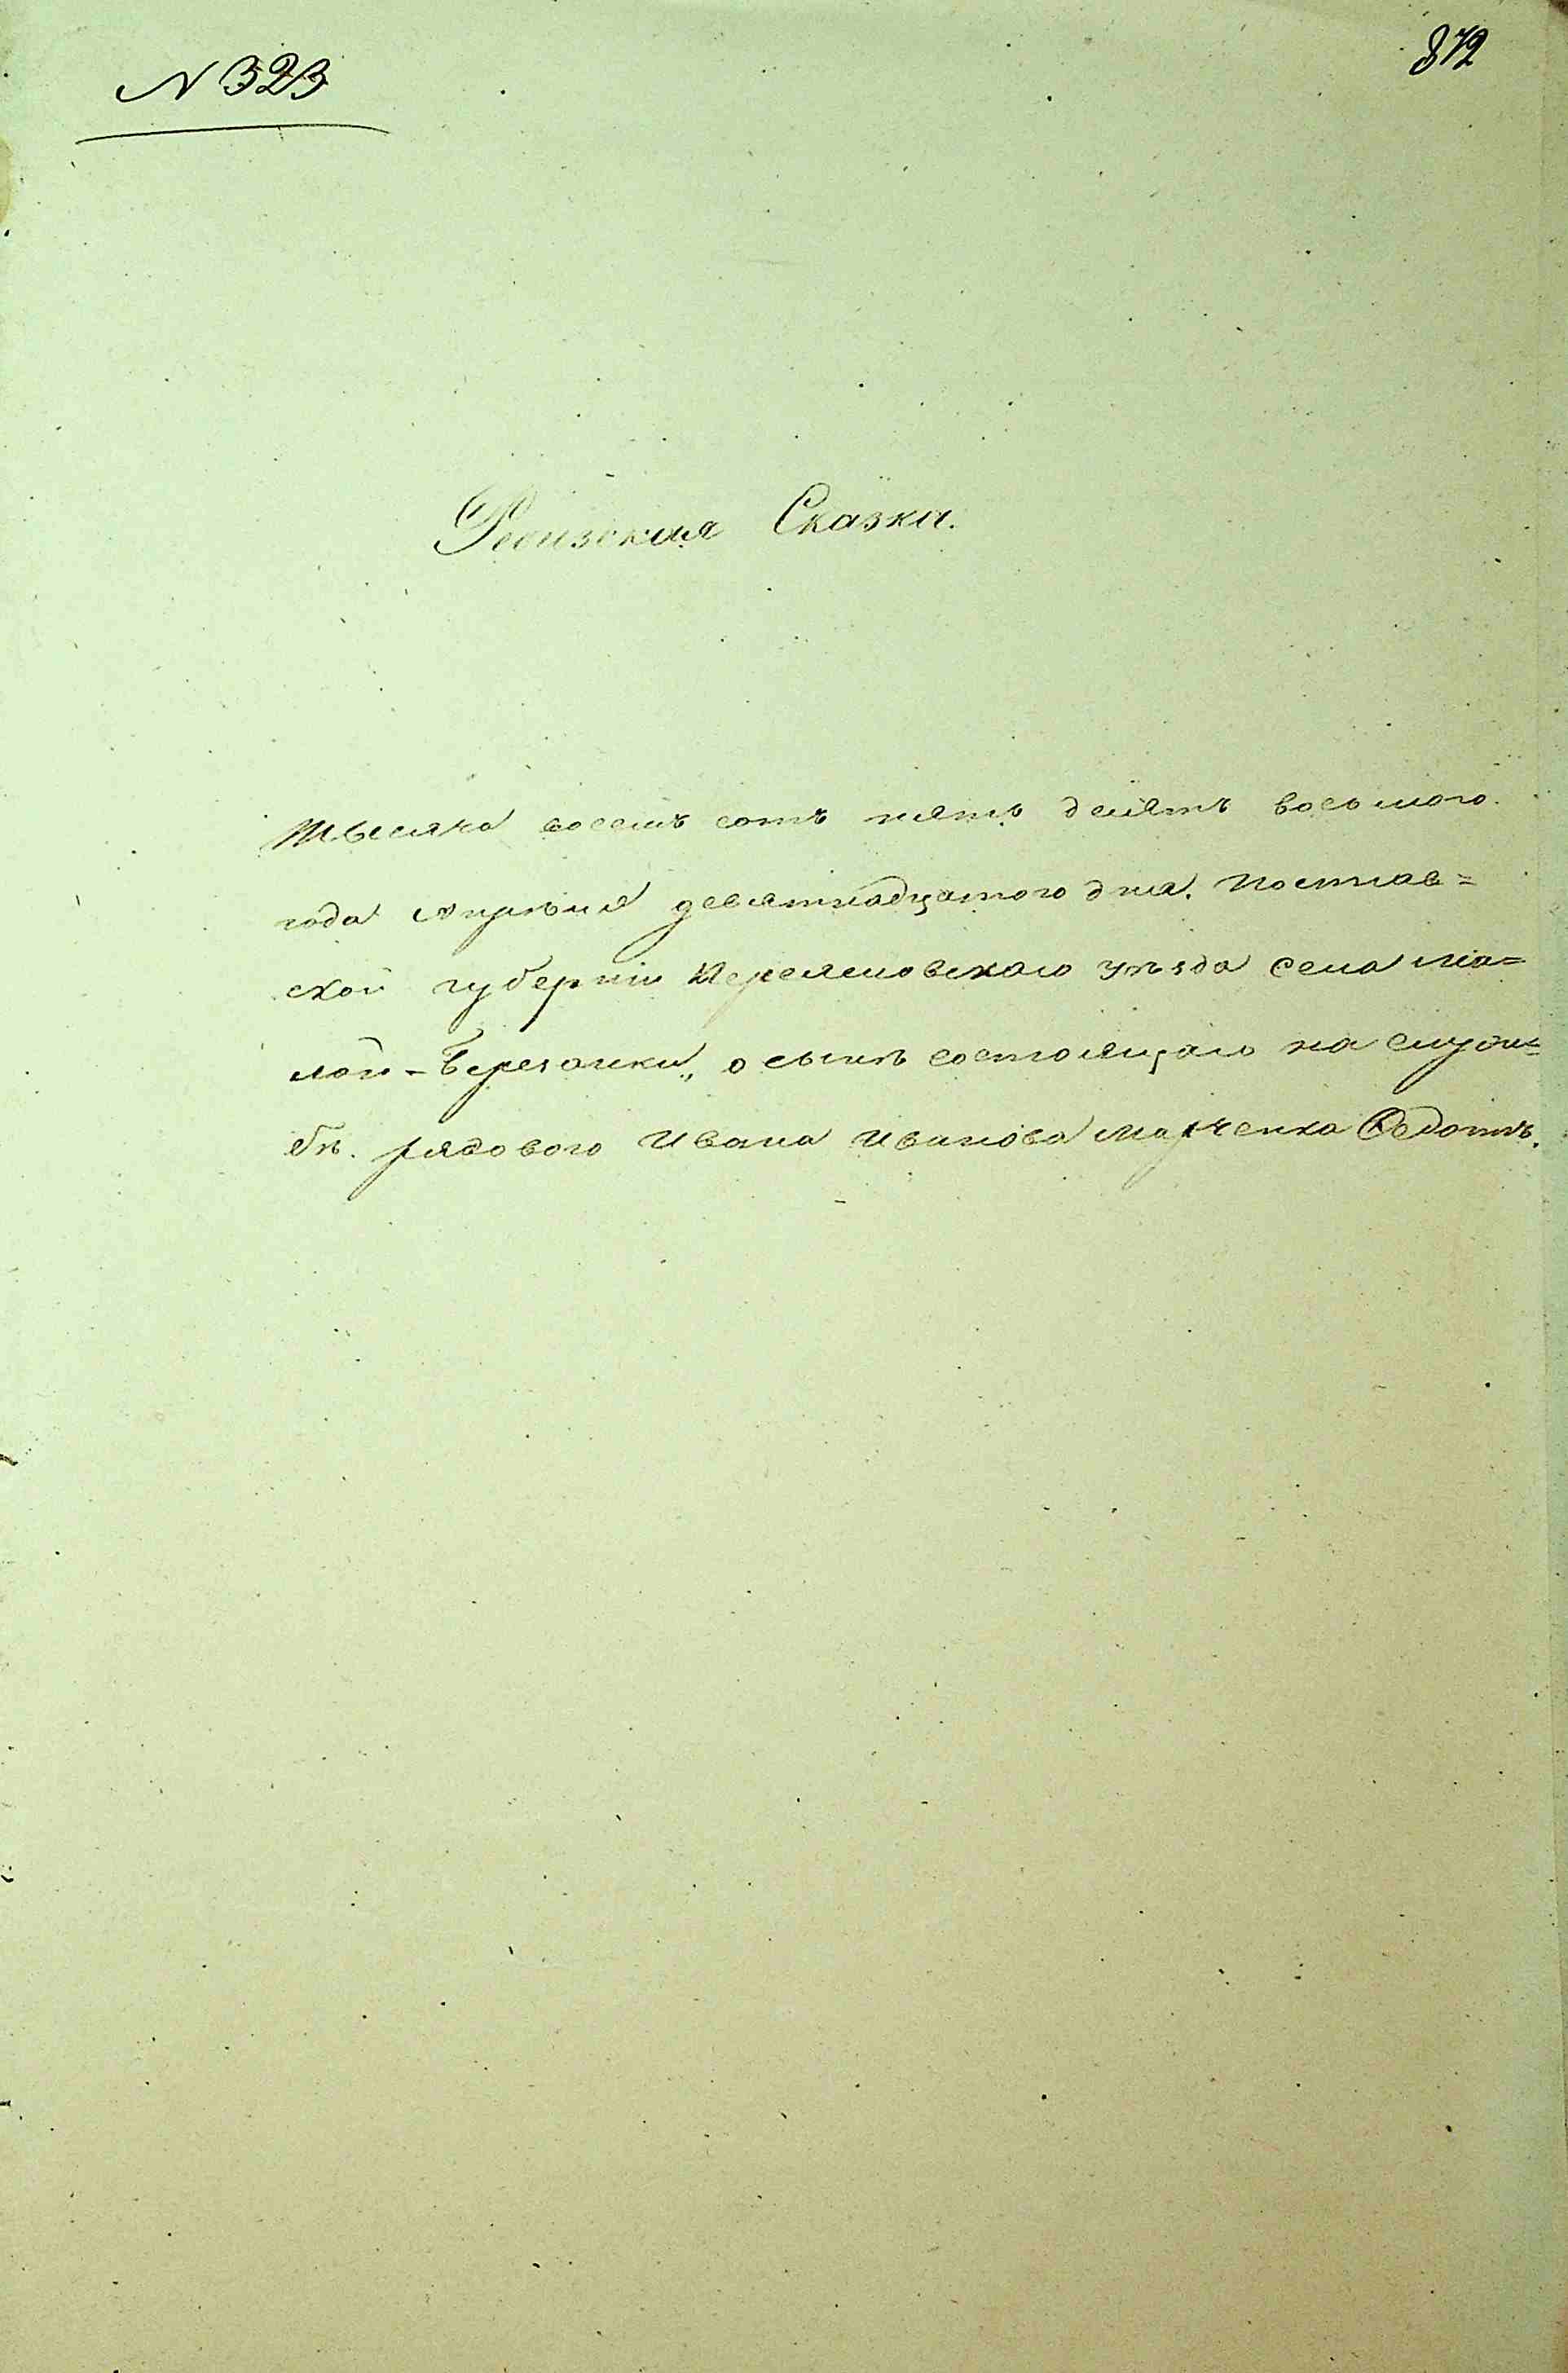 N 323
872
Ревизская Сказка.
Тысяча восемъ сотъ пять десятъ восьмого
года Апрѣля девятнадцатого дня. Полтав=
ской губерніи Переяславского уѣзда села Ма=
лой-Березанки, о сынѣ состоящаго на служ=
бѣ. рядового Ивана Иванова Марченка Федотѣ.